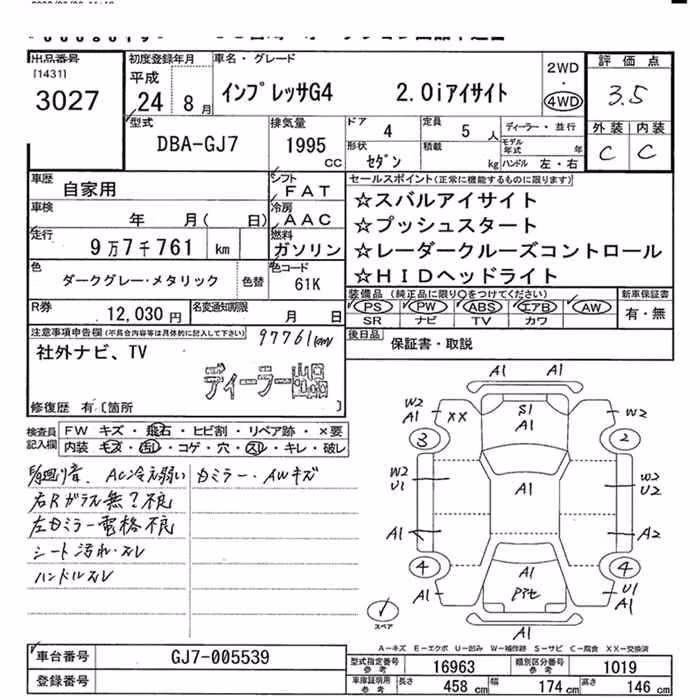 出品番号
[1431]
3027
初度登録年月
平成
24 8月
車名・グレード
インプレッサG4 2.0iアイサイト
2WD
・
4WD
評価点
3.5
外装 内装
C C
型式
DBA-GJ7
排気量
1995
CC
ドア 4
定員 5人
形状 セダン
積載 kg
ディーラー・並行
モデル年式 年
ハンドル 左・右
車歴
自家用
シフト
FAT
車検
年 月( 日)
冷房
AAC
走行
9万7千761 km
燃料
ガソリン
色
ダークグレー・メタリック
色替
色コード
61K
R券
12,030円
名変通知期限
月 日
セールスポイント(正常に機能するものに限ります)
☆スバルアイサイト
☆プッシュスタート
☆レーダークルーズコントロール
☆HIDヘッドライト
装備品(純正品に限り○をつけてください)
PS PW ABS エアB AW
SR ナビ TV カワ
新車保証書
有・無
後日品
保証書・取説
注意事項申告欄(不具合内容等は具体的に記入して下さい)
97761km
社外ナビ、TV
ディーラー
修復歴 有〔箇所 〕
検査員
記入欄
FW キズ・飛石・ヒビ割・リペア跡・×要
内装 キズ・汚れ・コゲ・穴・スレ・キレ・破レ
AC冷え弱い
右Rガラス無?不良
左カミラー電格不良
シート汚れ・スレ
ハンドルスレ
カミラー・AWキズ
A1 A1
W2
A1
XX
S1
A1
W2
3
2
W2
U1
A1
W2
U2
A1
A2
4
A1
4
A1
Pit
U1
A1
A1 A1
スペア
A-キズ E-エクボ U-凹み W-補修跡 S-サビ C-腐食 XX-交換済
車台番号
GJ7-005539
登録番号
型式指定番号
参考
16963
類別区分番号
参考
1019
車庫証明用
参考
長さ 458 cm
幅 174 cm
高さ 146 cm